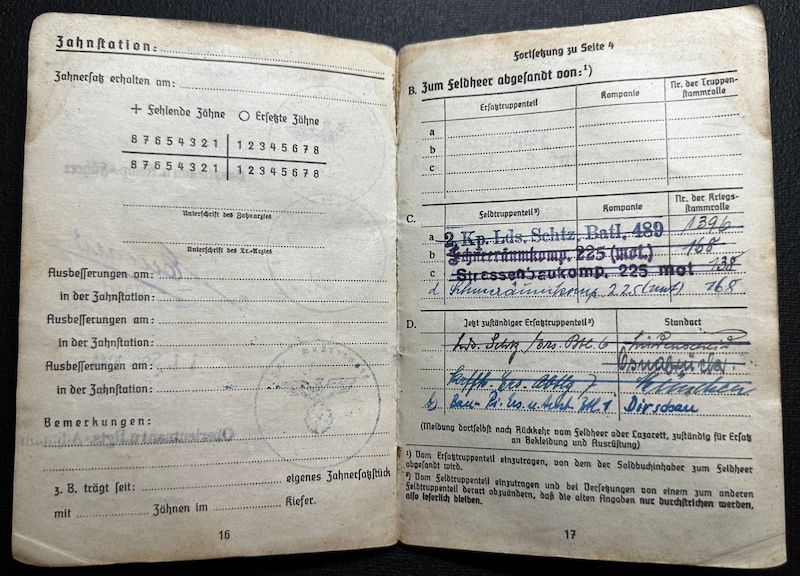 Zahnstation:
Zahnersatz erhalten am:
+ Fehlende Zähne O Ersetzte Zähne
8 7 6 5 4 3 2 1 1 2 3 4 5 6 7 8
8 7 6 5 4 3 2 1 1 2 3 4 5 6 7 8
Unterschrift des Zahnarztes
Unterschrift des Tr.-Arztes
Ausbesserungen am:
in der Zahnstation:
Ausbesserungen am:
in der Zahnstation:
Ausbesserungen am:
in der Zahnstation:
Bemerkungen:
z. B. trägt seit: eigenes Zahnersatzstück
mit Zähnen im Kiefer.
16
Fortsetzung zu Seite 4
B. Zum Feldheer abgesandt von:¹)
Ersatztruppenteil Kompanie Nr. der Truppen-
stammrolle
a
b
c
C. Feldtruppenteil²) Kompanie Nr. der Kriegs-
stammrolle
a 2. Kp. Lds. Schtz. Batl. 489 1396
b Schneeräumkomp. 225 (mot.) 168
c Strassenbaukomp. 225 mot 138
d Schneeräumkomp. 225 (mot) 168
D. Jetzt zuständiger Ersatztruppenteil²) Standort
Lds. Schtz. Ers. Btl. 6
Osnabrück
Ers. 7 München
Dirschau
(Meldung dortselbst nach Rückkehr vom Feldheer oder Lazarett, zuständig für Ersatz
an Bekleidung und Ausrüstung)
¹) Vom Ersatztruppenteil einzutragen, von dem der Soldbuchinhaber zum Feldheer
abgesandt wird.
²) Vom Feldtruppenteil einzutragen und bei Versetzungen von einem zum anderen
Feldtruppenteil derart abzuändern, daß die alten Angaben nur durchstrichen werden,
also leserlich bleiben.
17